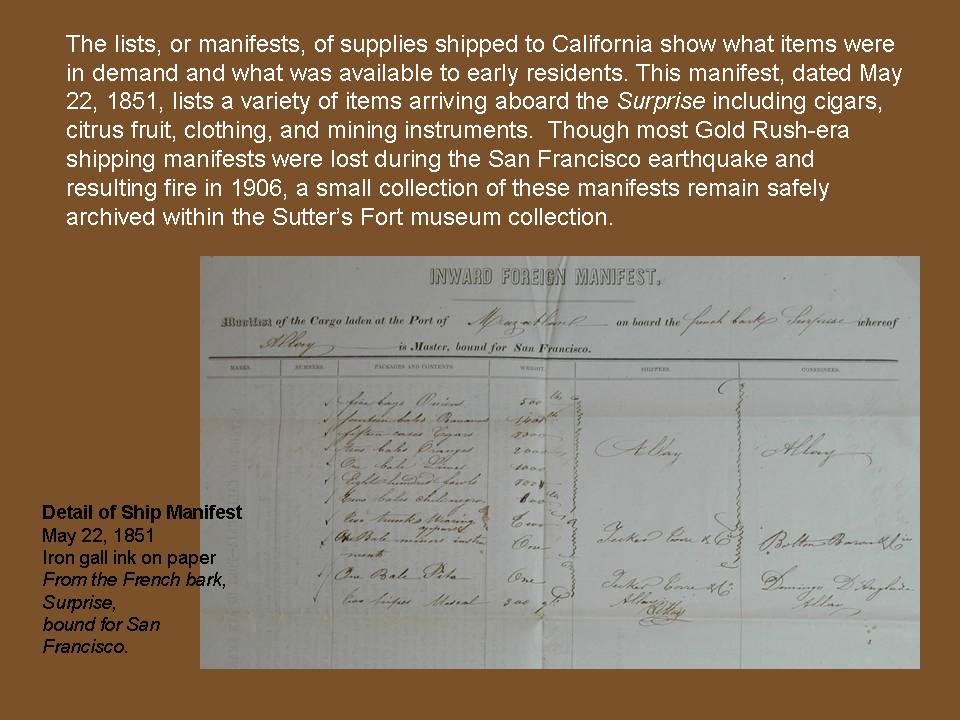 The lists, or manifests, of supplies shipped to California show what items were
in demand and what was available to early residents. This manifest, dated May
22, 1851, lists a variety of items arriving aboard the Surprise including cigars,
citrus fruit, clothing, and mining instruments.  Though most Gold Rush-era
shipping manifests were lost during the San Francisco earthquake and
resulting fire in 1906, a small collection of these manifests remain safely
archived within the Sutter's Fort museum collection.
INWARD FOREIGN MANIFEST,
Manifest of the Cargo laden at the Port of Mazatlan on board the french bark Surprise whereof
Allay is Master, bound for San Francisco.
MARKS. NUMBERS. PACKAGES AND CONTENTS WEIGHT. SHIPPERS. CONSIGNEES.
five bags Onions 500 lbs
fourteen bales Bananas
fifteen cases Cigars
bales Oranges 2000
One bale Limes 1000
Eight hundred fowls
bales
Allay Allay
two trunks Wearing apparel Two
One Bale miners instru One
ments
One Bale Pita One
Mescal 300
Detail of Ship Manifest
May 22, 1851
Iron gall ink on paper
From the French bark,
Surprise,
bound for San
Francisco.